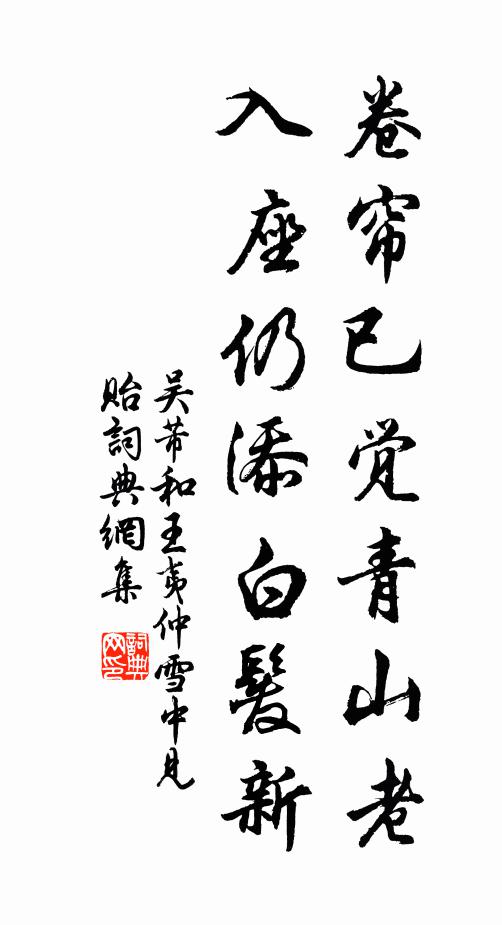 卷帘已觉青山老
入座仍添白髮新
吴芾和王夷仲雪中見
貽詞典網集
詞典
网印